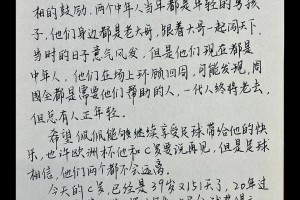 相的鼓励，两个中年人当年都是年轻的男孩
子，他们身边都是老大哥，跟着大哥一起闯天下，
当时的日子意气风发，但是他们现在都是
中年人，他们在场上环顾四周，可能发现，周
围全都是需要他们帮助的人，一代人终将老去，
但总有人正年轻。
希望佩佩能够继续享受足球带给他的快
乐，也许欧洲杯他和C罗要说再见，但是足球
相信，他们两个都不会远离。
今天的C罗，已经是39岁又151天了，20年过